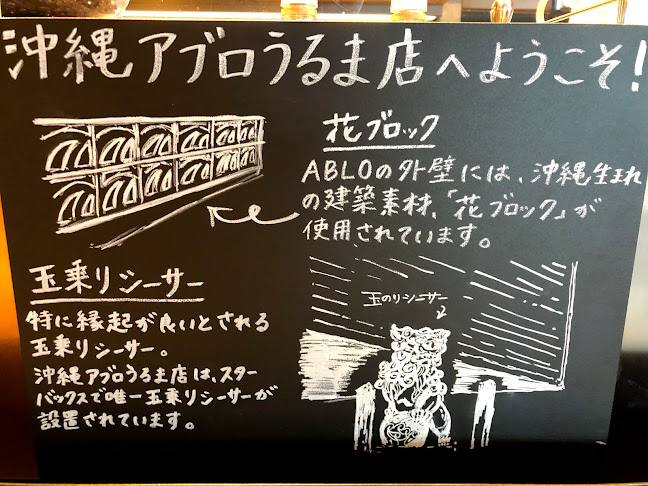 沖縄アブロうるま店へようこそ!
花ブロック
ABLOの外壁には、沖縄生まれ
の建築素材、「花ブロック」が
使用されています。
玉乗りシーサー
特に縁起が良いとされる
玉乗りシーサー。
沖縄アブロうるま店は、スター
バックスで唯一玉乗りシーサーが
設置されています。
玉のりシーサー